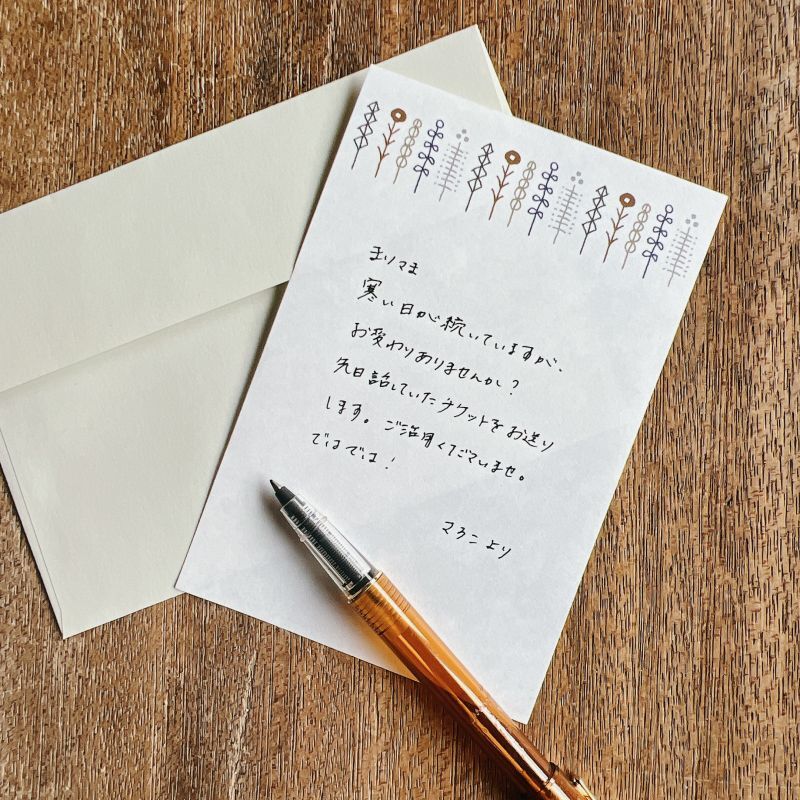 まりさま
寒い日が続いていますが、
お変わりありませんか？
先日話していたチケットをお送り
します。ご活用くださいませ。
ではでは！
まろこより